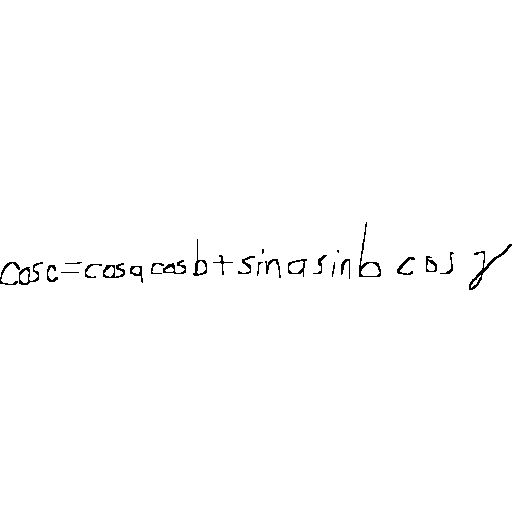 cos c = cos a cos b + sin a sin b cos γ